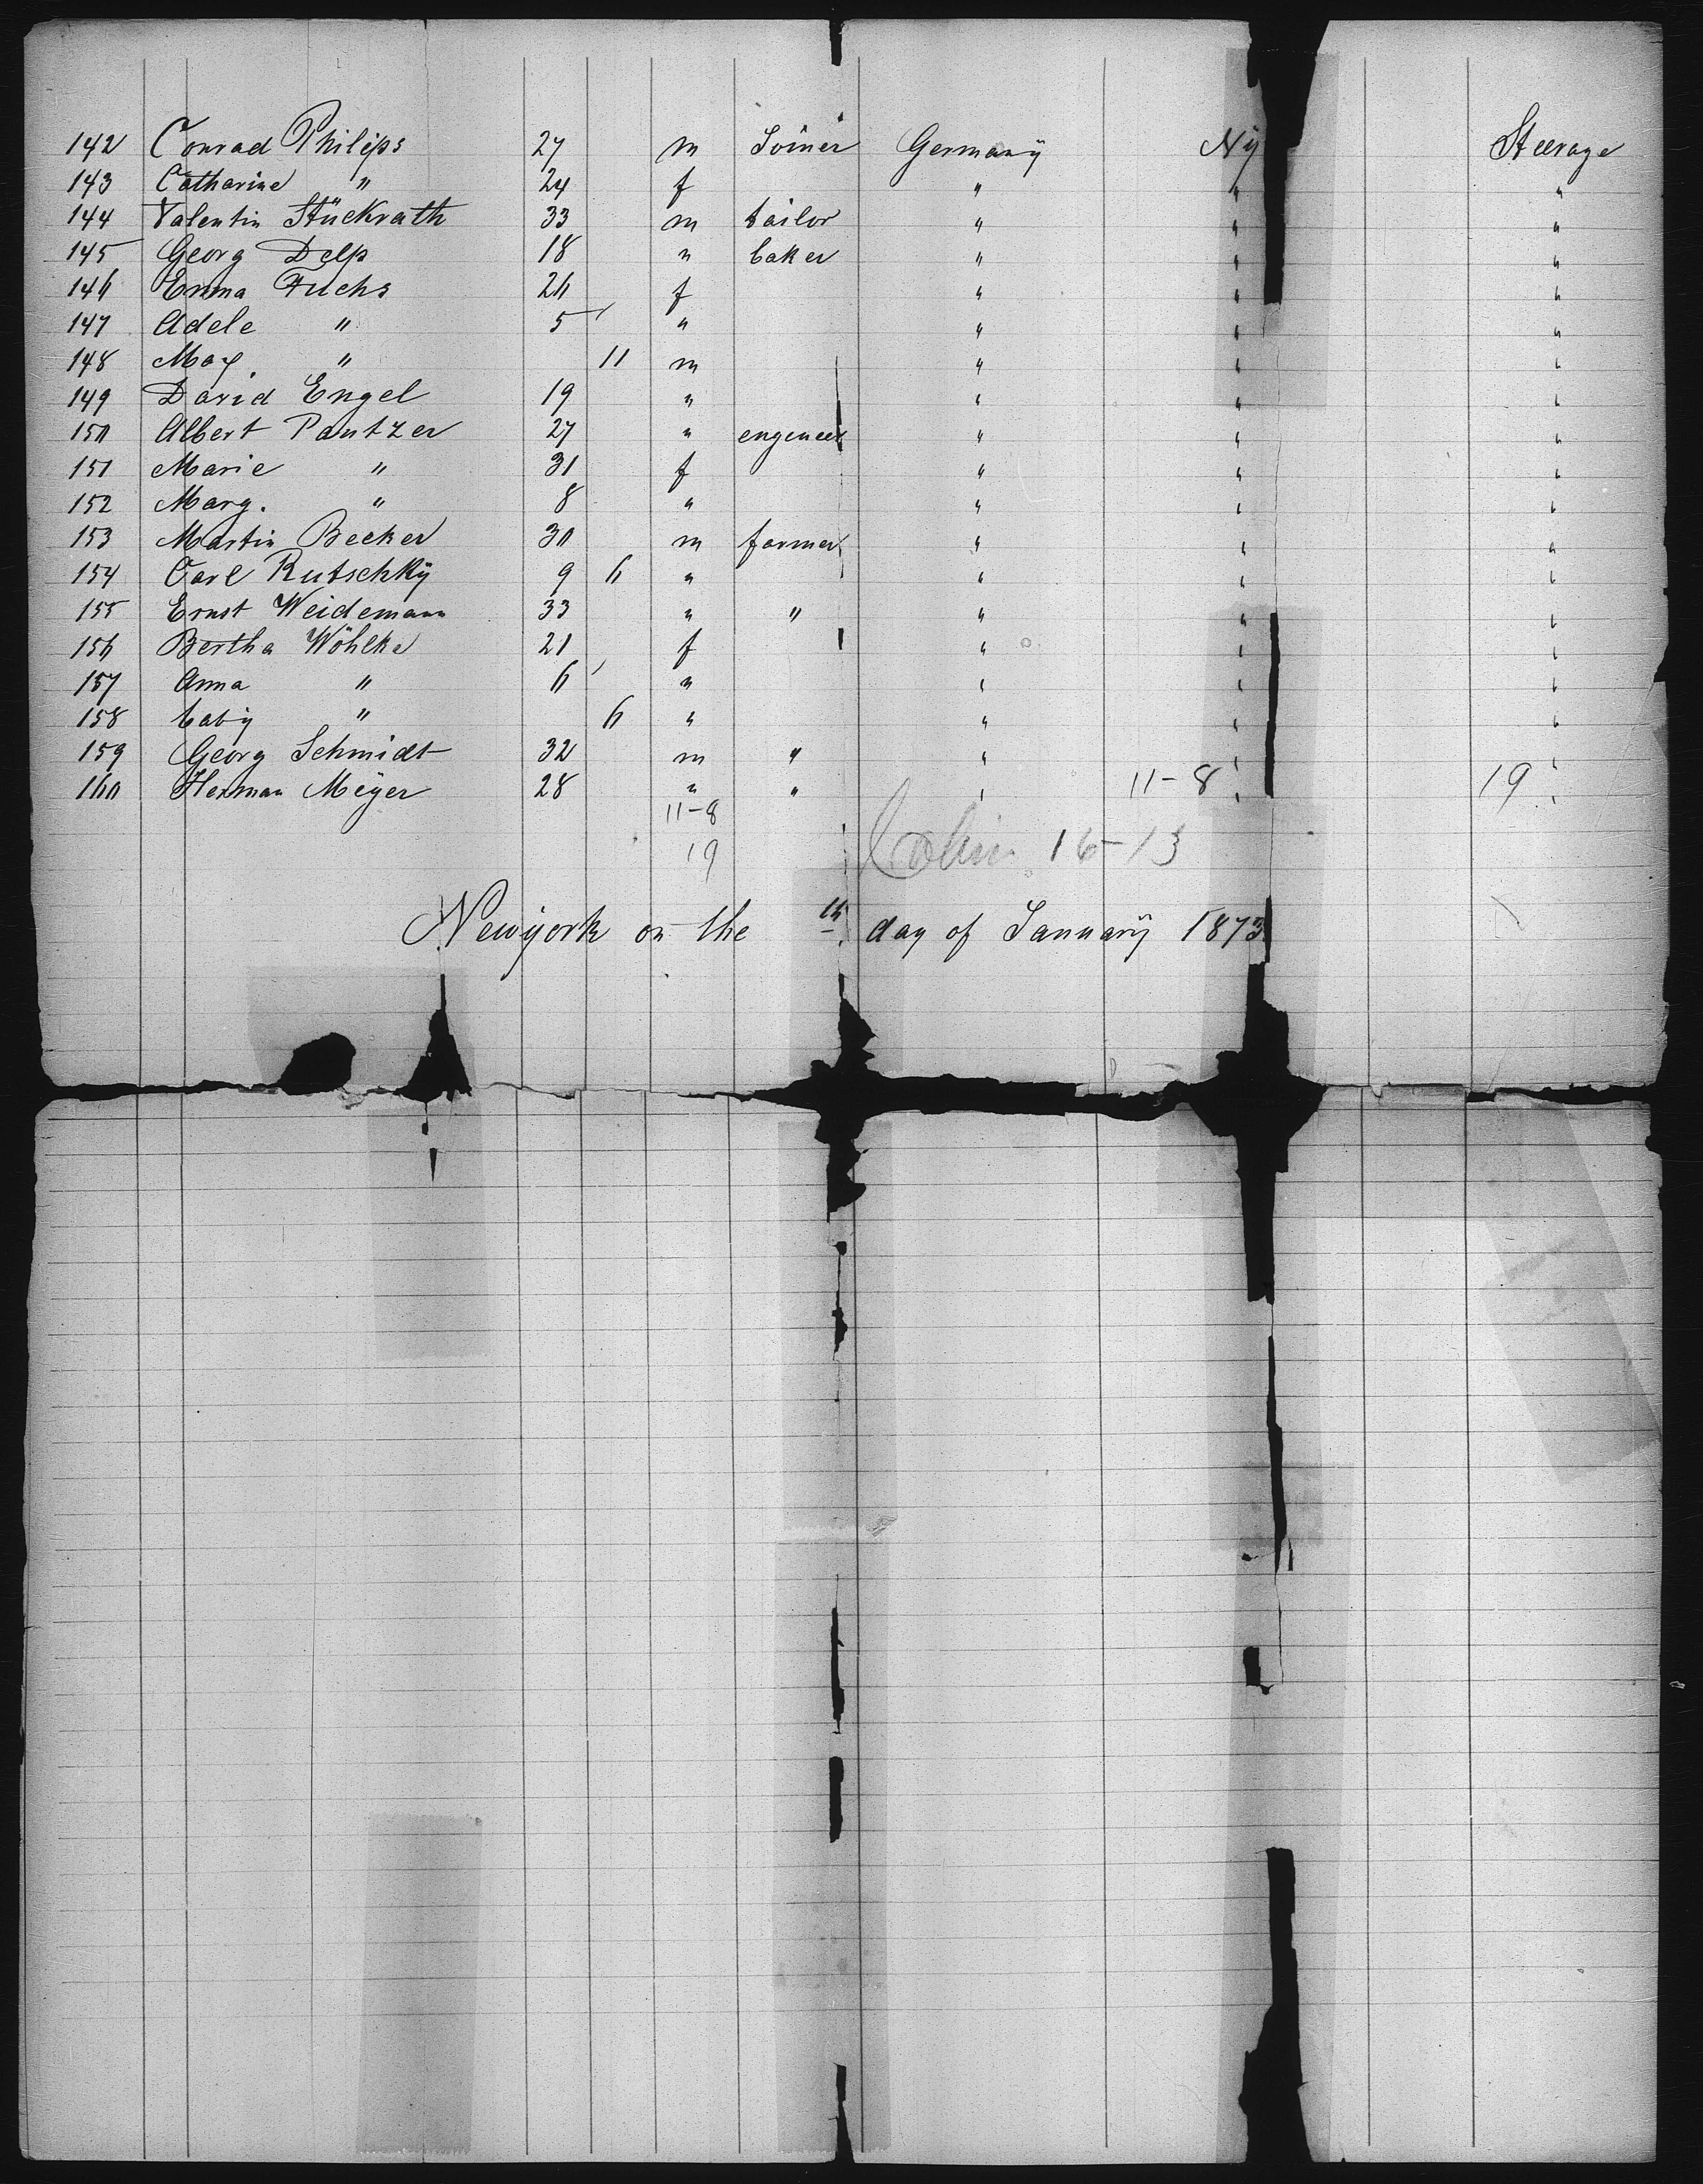 142 Conrad Philips 27 m Joiner Germany Ny Steerage
143 Catharine " 24 f " " "
144 Valentin Stückrath 33 m tailor " " "
145 Georg Delp 18 " baker " " "
146 Emma Fuchs 26 f " " "
147 Adele " 5 " " " "
148 Max " 11 m " " "
149 David Engel 19 " " " "
150 Albert Pantzer 27 " engeneer " " "
151 Marie " 31 f " " "
152 Marg. " 8 " " " "
153 Martin Becker 30 m farmer " " "
154 Carl Rutschkÿ 9 6 " " " "
155 Ernst Weidemann 33 " " " " "
156 Bertha Wöhlke 21 f " " "
157 Anna " 6 " " " "
158 baby " 6 " " " "
159 Georg Schmidt 32 m " " " "
160 Herman Meÿer 28 " " " 11-8 " 19 "
11-8
19
16-13
Newÿork on the th day of Januarÿ 1873